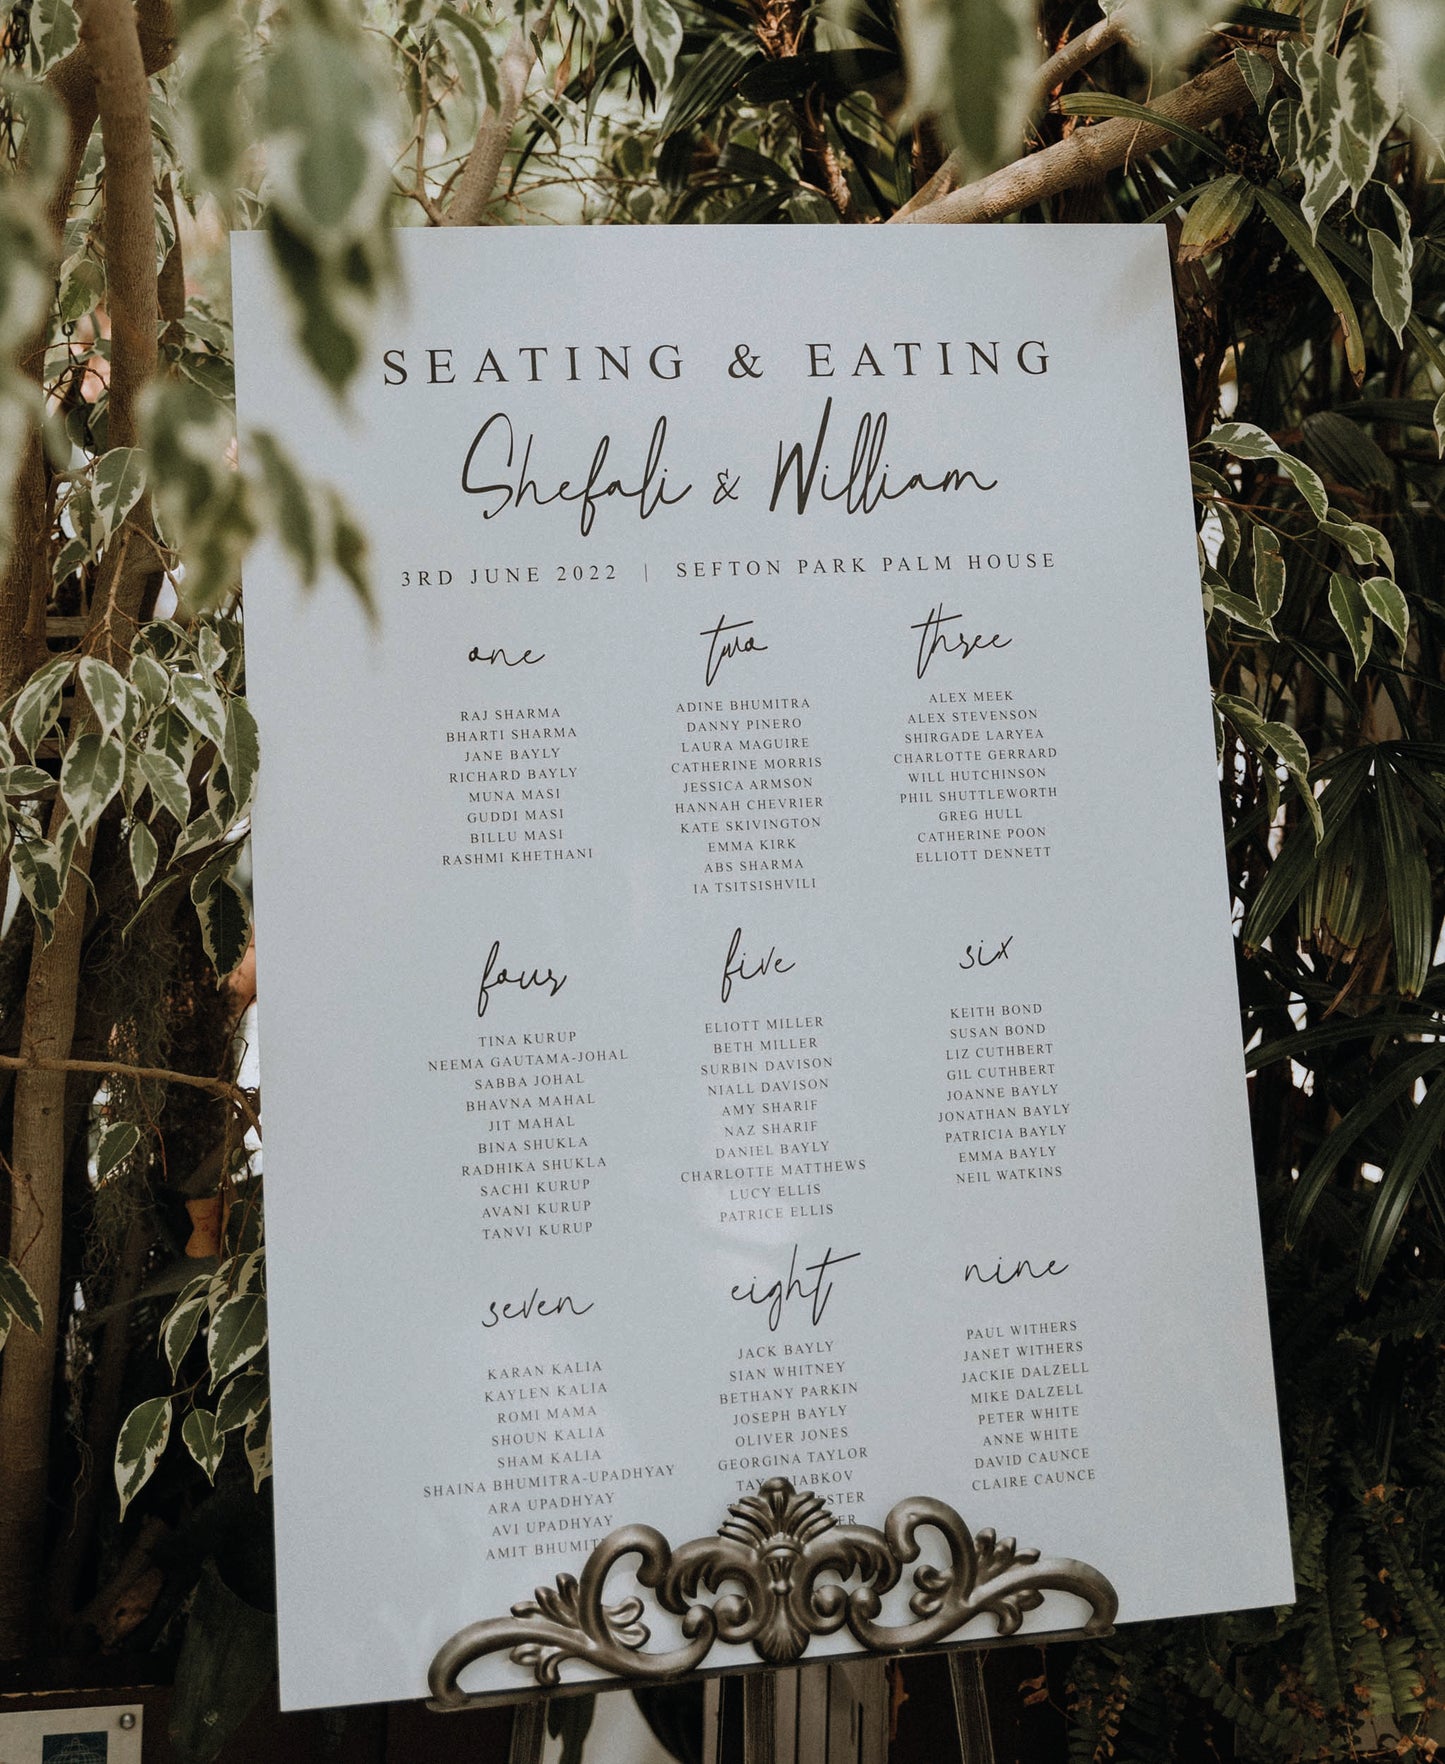 SEATING & EATING
Shefali & William
3RD JUNE 2022 | SEFTON PARK PALM HOUSE
one
RAJ SHARMA
BHARTI SHARMA
JANE BAYLY
RICHARD BAYLY
MUNA MASI
GUDDI MASI
BILLU MASI
RASHMI KHETHANI
two
ADINE BHUMITRA
DANNY PINERO
LAURA MAGUIRE
CATHERINE MORRIS
JESSICA ARMSON
HANNAH CHEVRIER
KATE SKIVINGTON
EMMA KIRK
ABS SHARMA
IA TSITSISHVILI
three
ALEX MEEK
ALEX STEVENSON
SHIRGADE LARYEA
CHARLOTTE GERRARD
WILL HUTCHINSON
PHIL SHUTTLEWORTH
GREG HULL
CATHERINE POON
ELLIOTT DENNETT
four
TINA KURUP
NEEMA GAUTAMA-JOHAL
SABBA JOHAL
BHAVNA MAHAL
JIT MAHAL
BINA SHUKLA
RADHIKA SHUKLA
SACHI KURUP
AVANI KURUP
TANVI KURUP
five
ELIOTT MILLER
BETH MILLER
SURBIN DAVISON
NIALL DAVISON
AMY SHARIF
NAZ SHARIF
DANIEL BAYLY
CHARLOTTE MATTHEWS
LUCY ELLIS
PATRICE ELLIS
six
KEITH BOND
SUSAN BOND
LIZ CUTHBERT
GIL CUTHBERT
JOANNE BAYLY
JONATHAN BAYLY
PATRICIA BAYLY
EMMA BAYLY
NEIL WATKINS
seven
KARAN KALIA
KAYLEN KALIA
ROMI MAMA
SHOUN KALIA
SHAM KALIA
SHAINA BHUMITRA-UPADHYAY
ARA UPADHYAY
AVI UPADHYAY
AMIT
eight
JACK BAYLY
SIAN WHITNEY
BETHANY PARKIN
JOSEPH BAYLY
OLIVER JONES
GEORGINA TAYLOR
nine
PAUL WITHERS
JANET WITHERS
JACKIE DALZELL
MIKE DALZELL
PETER WHITE
ANNE WHITE
DAVID CAUNCE
CLAIRE CAUNCE